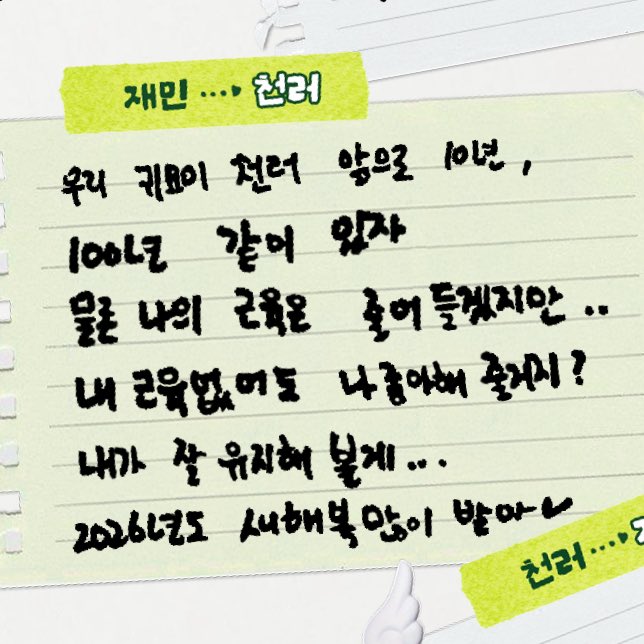 재민 ····▸ 천러
우리 귀표이 천러 앞으로 10년,
100년 같이 있자
물론 나의 근육은 줄어들겠지만..
내 근육없어도 나 좋아해 줄거지?
내가 잘 유지해 볼게...
2026년도 새해복 많이 받아~
천러 ····